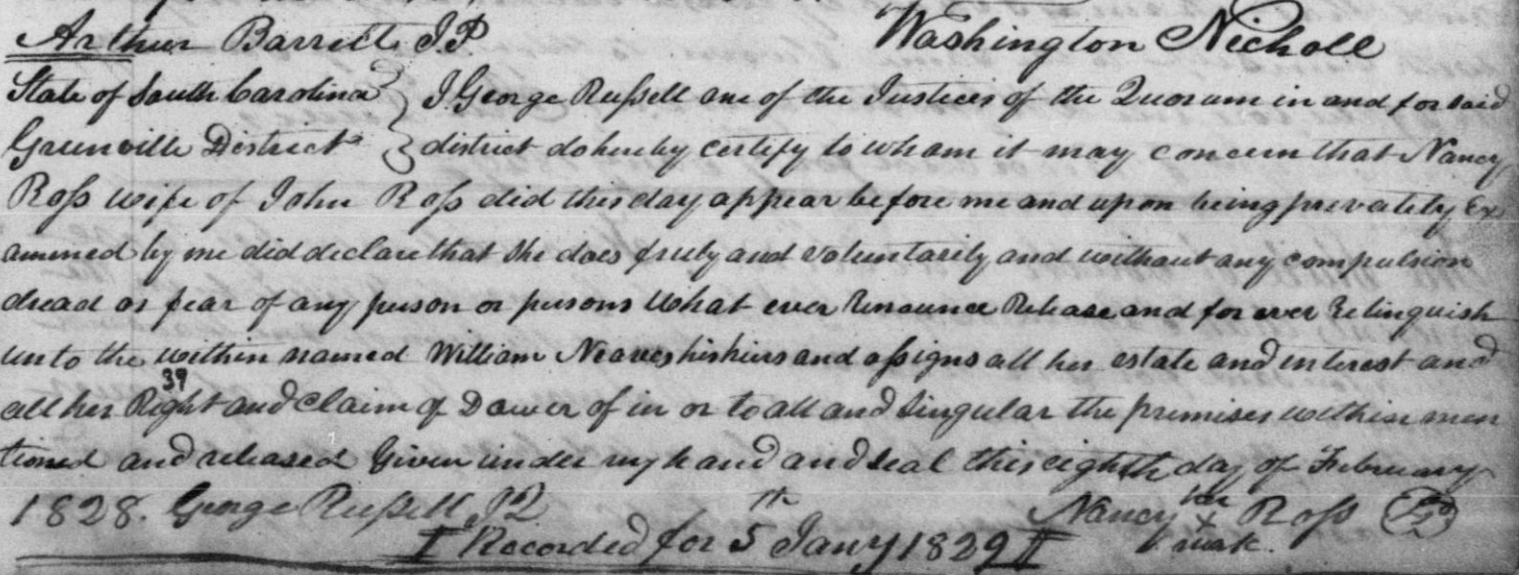 Arthur Barrett J.P. Washington Nicholl
State of South Carolina } I George Russell one of the Justices of the Quorum in and for said
Greenville District } district do hereby certify to whom it may concern that Nancy
Ross wife of John Ross did this day appear before me and upon being privately Ex
amined by me did declare that She does freely and voluntarily and without any compulsion
dread or fear of any person or persons What ever Renounce Release and for ever Relinquish
unto the within named William Neaves his heirs and assigns all her estate and interest and
39
all her Right and Claim of Dower of in or to all and Singular the premises within men
tioned and released Given under my hand and Seal this eighth day of February
1828. George Russell JQ Nancy her x mark Ross
Recorded for 5th Jany 1829